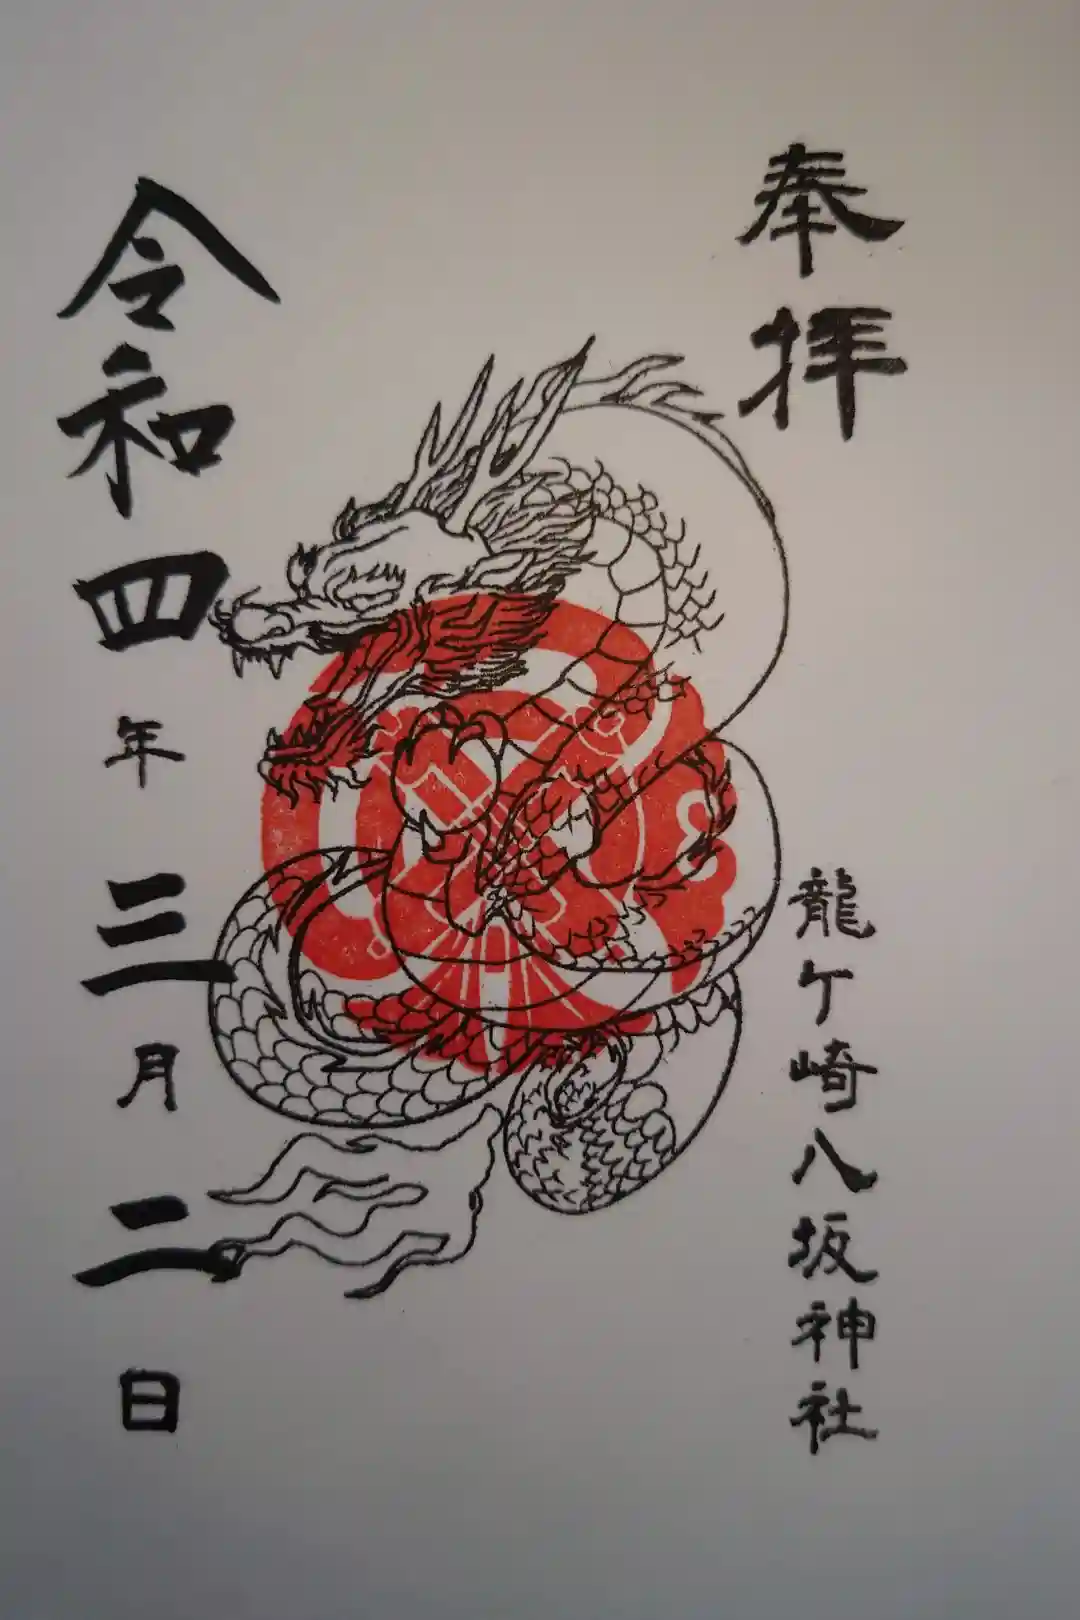 奉拝
龍ケ崎八坂神社
令和四年三月二日